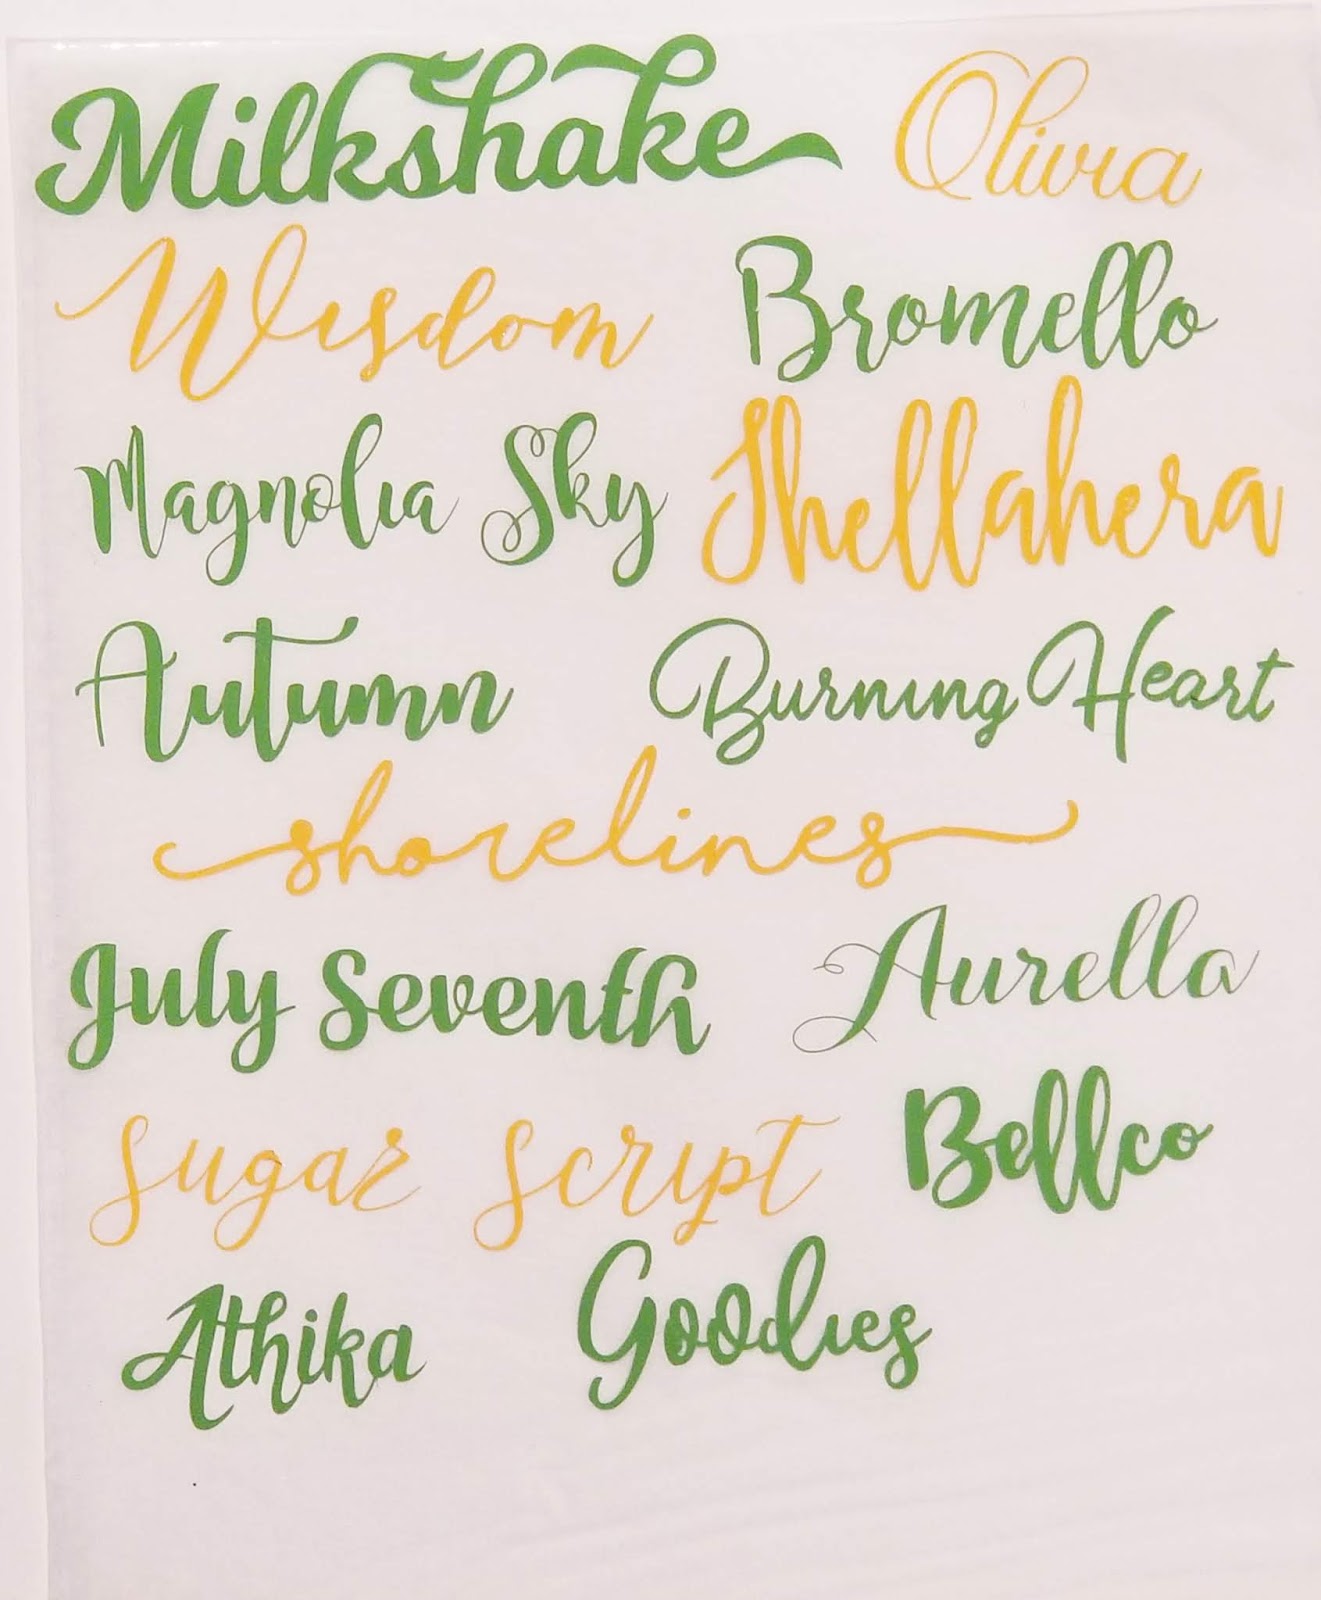 Milkshake Olivia
Wisdom Bromello
Magnolia Sky Shellahera
Autumn Burning Heart
shorelines
July Seventh Aurella
Sugar Script Bellco
Athika Goodies